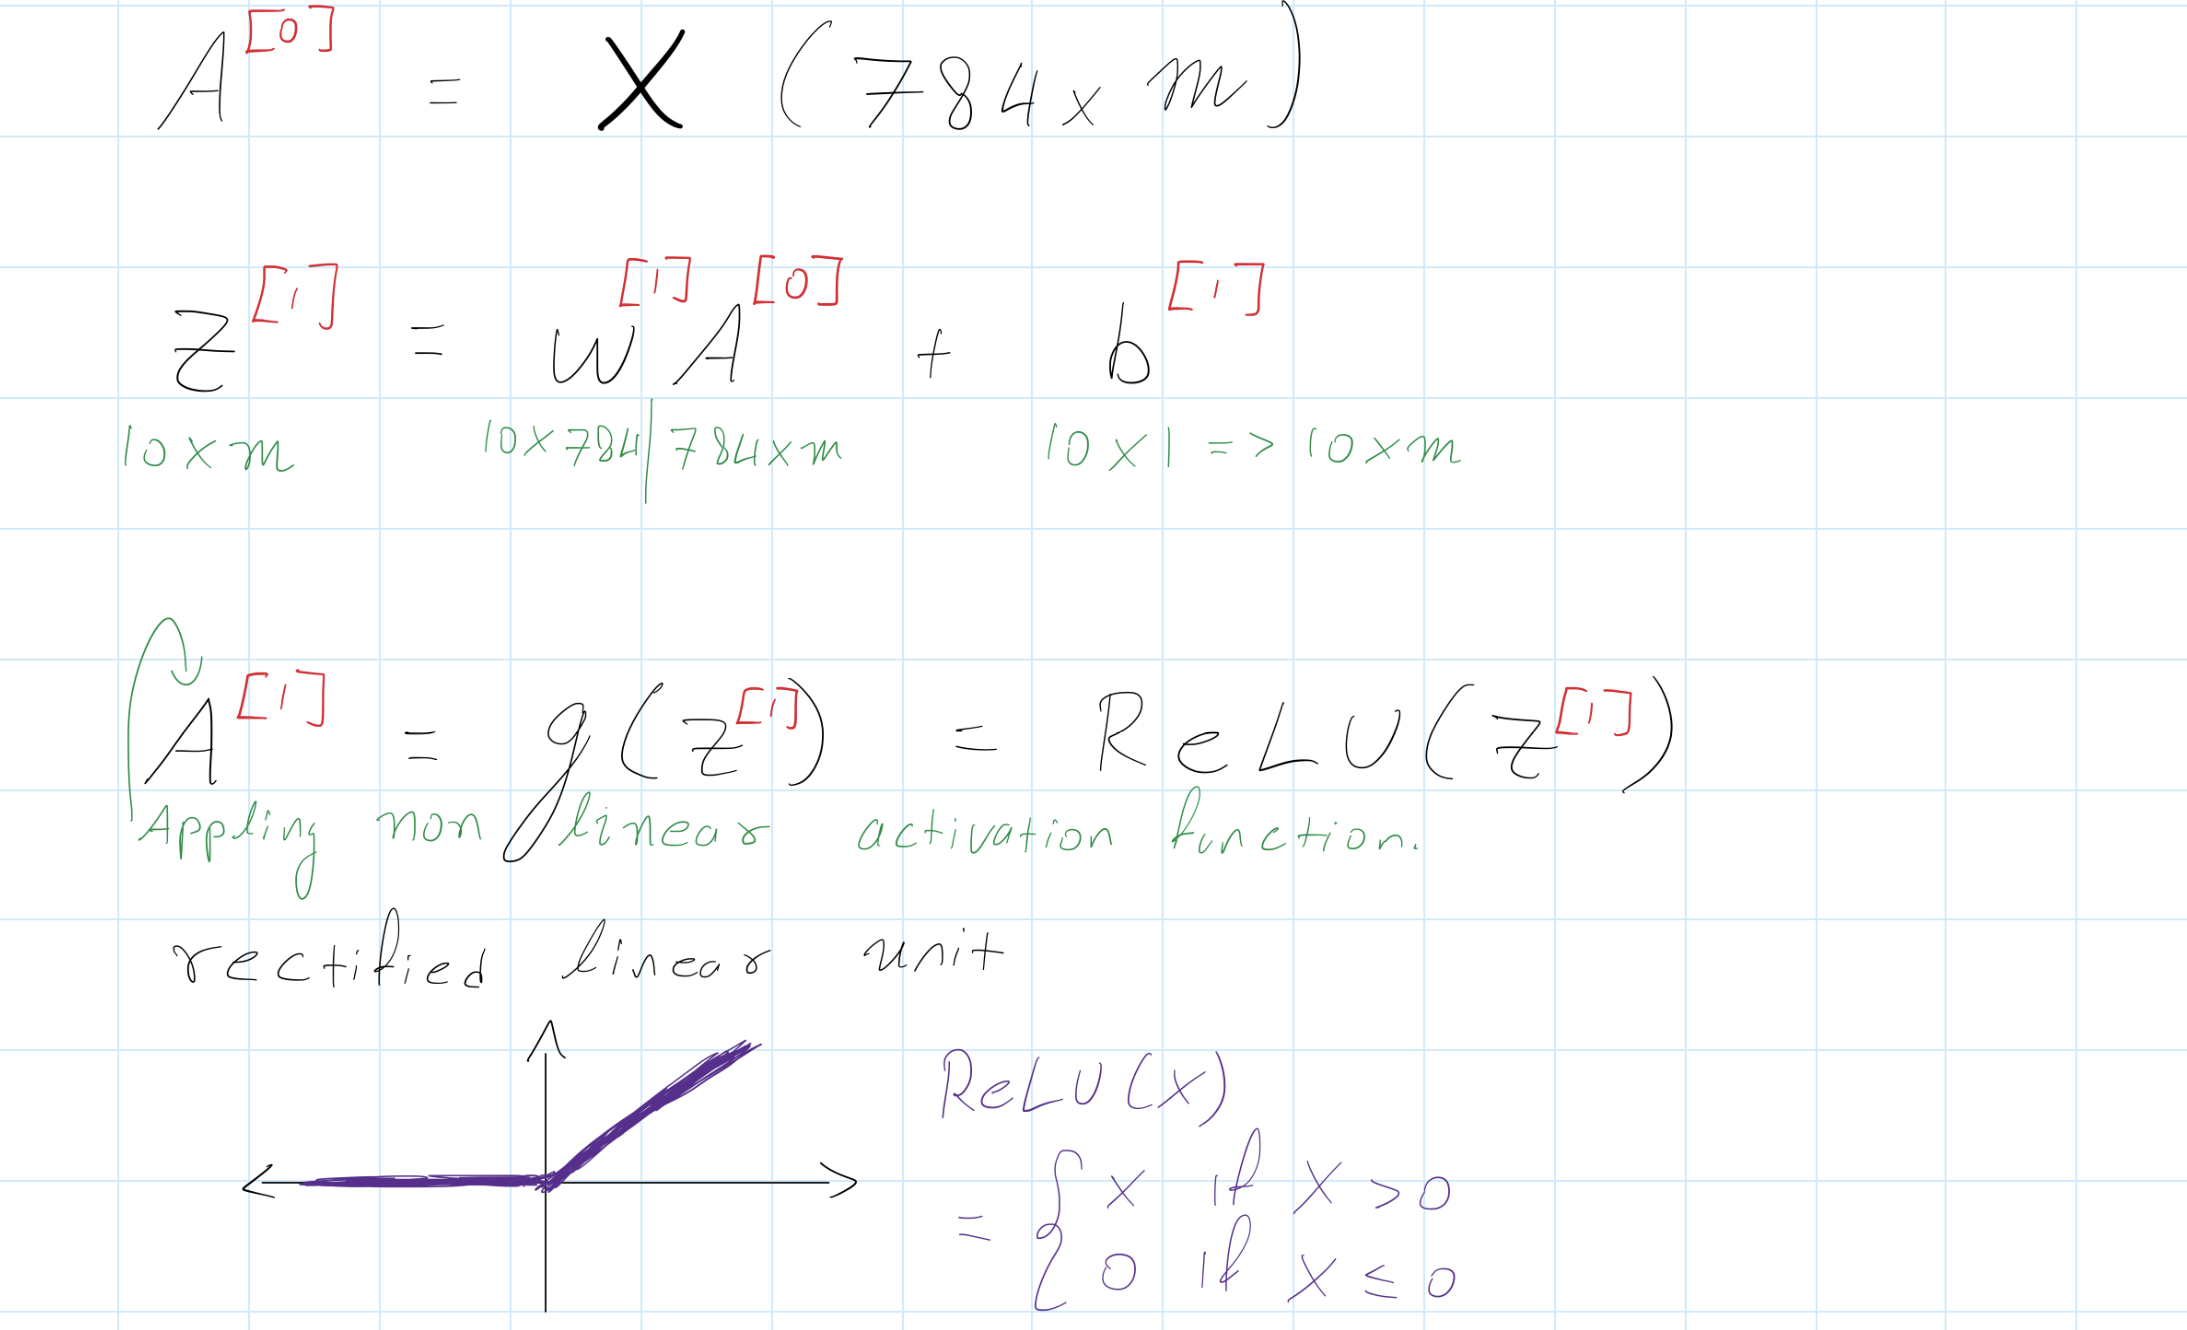 A[0] = X (784 x m)
Z[1] = W[1] A[0] + b[1]
10 x m 10 x 784 | 784 x m 10 x 1 => 10 x m
A[1] = g(Z[1]) = ReLU(Z[1])
Appling non linear activation function.
rectified linear unit
ReLU(x)
= { x if x > 0
0 if x ≤ 0